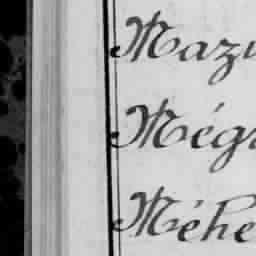 Mazu
Mégr
Méhe